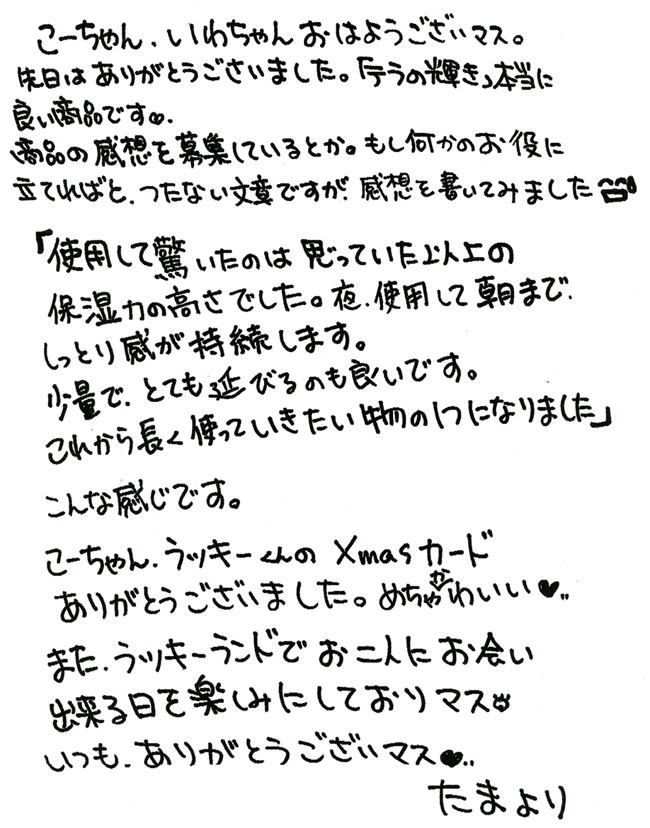 こーちゃん、いわちゃん おはようございマス。
先日は ありがとうございました。「テラの輝き」本当に
良い商品です♡.
商品の 感想を 募集しているとか。もし何かのお役に
立てればと、つたない文章ですが、感想を書いてみました
「使用して驚いたのは 思っていた以上の
保湿力の高さでした。夜、使用して 朝まで、
しっとり感が 持続します。
少量で、とても延びるのも良いです。
これから長く使っていきたい物の1つになりました」
こんな感じです。
こーちゃん、ラッキーくんの Xmasカード
ありがとうございました。めちゃかわいい♥..
また、ラッキーランドで お二人に お会い
出来る日を楽しみにしておりマス
いつも、ありがとうございマス♥..
たまより